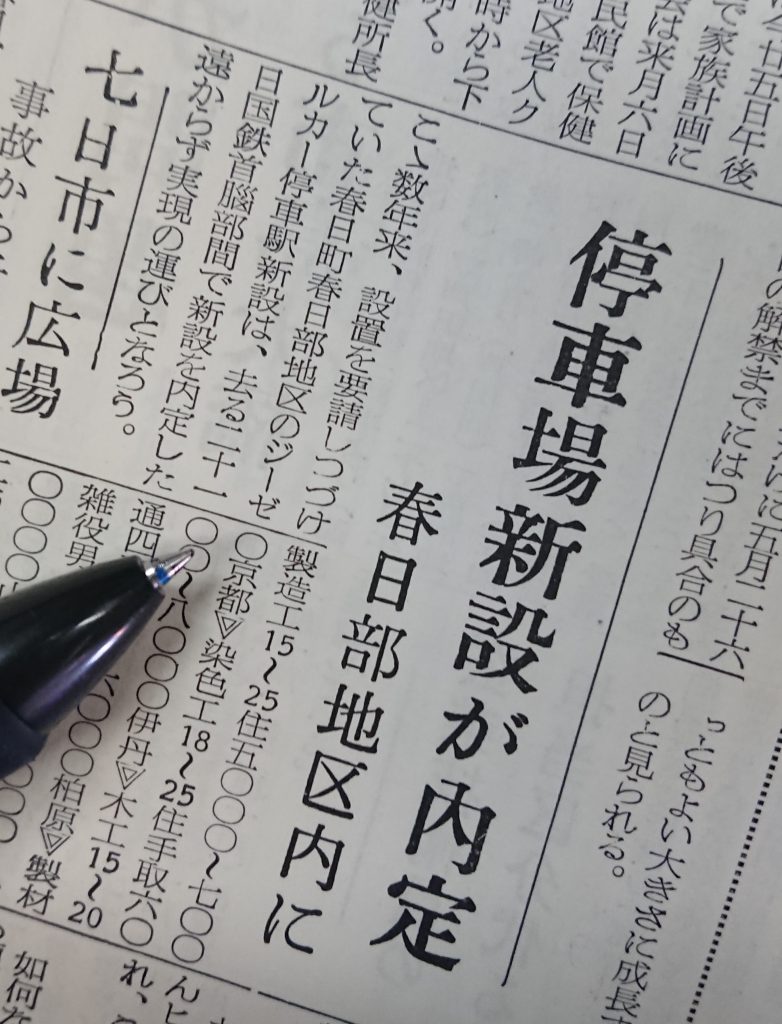 廿五日午後
で家族計画に
は来月六日
民館で保健
地区老人ク
時から下
開く。
健所長
の解禁までにはつり具合のも
五月二十六
っともよい大きさに成長
のと見られる。
停車場新設が内定
春日部地区内に
こゝ数年来、設置を要請しつづけ
ていた春日町春日部地区のジーゼ
ルカー停車駅新設は、去る二十一
日国鉄首脳部間で新設を内定した
遠からず実現の運びとなろう。
七日市に広場
事故から
製造工15〜25住五〇〇〇〜七〇〇
〇京都▽染色工18〜25住手取六〇
〇〇〜八〇〇〇伊丹▽木工15〜20
通四
六〇〇〇柏原▽製材
雑役男
〇〇〇〇
んヒ
れ、
如何な